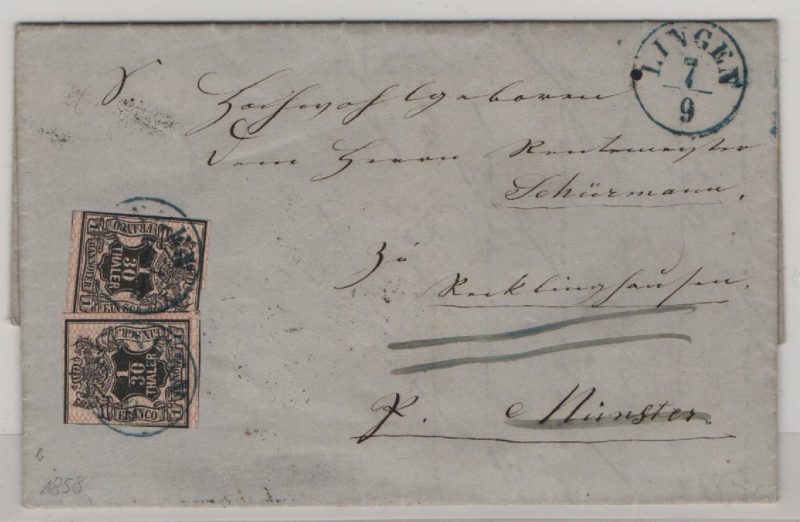 LINGEN
7
9
Sr Hochwohlgeboren
dem Herrn Rentemeister
Schürmann.
zu
Recklinghausen.
p. Münster.
FRANCO
HANNOVER
1
30
THALER
1
30
THALER
FRANCO
b
1858